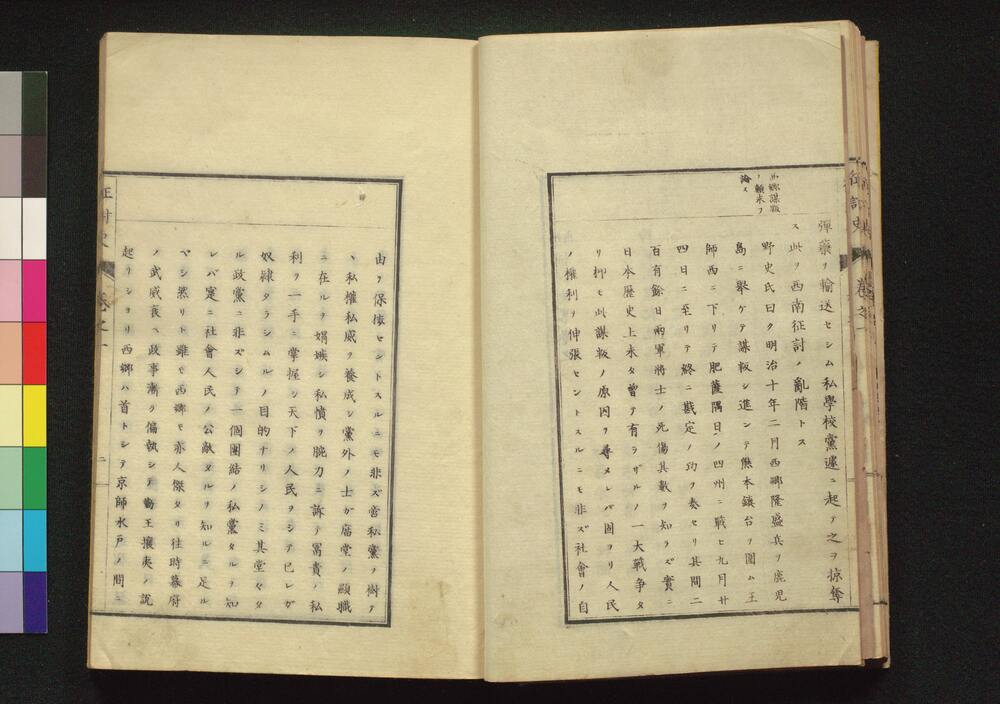 彈藥ヲ輸送セシム私學校黨遽ニ起テ之ヲ掠奪
ス此ヲ西南征討ノ亂階トス
野史氏曰ク明治十年二月西郷隆盛兵ヲ鹿児
島ニ擧ケテ謀叛シ進ンテ熊本鎮台ヲ圍ム王
師西ニ下リテ肥薩隅日ノ四州ニ戰ヒ九月廿
四日ニ至リテ終ニ戡定ノ功ヲ奏セリ其間二
百有餘日兩軍將士ノ死傷其數ヲ知ラズ實ニ
日本歴史上未タ曾テ有ラザルノ一大戰争タ
リ抑モ此謀叛ノ原因ヲ尋メレバ固ヨリ人民
ノ權利ヲ伸張セントスルニモ非ズ社會ノ自
西郷謀叛
ノ顛末ヲ
論ス
征討史
卷之一
由ヲ保攘セントスルニモ非ズ啻私黨ヲ樹テ
ヽ私權私威ヲ養成シ黨外ノ士ガ庿堂ノ顯職
ニ在ルヲ娟嫉シ私憤ヲ腕力ニ訴テ冨貴ノ私
利ヲ一手ニ掌握シ天下ノ人民ヲシテ已レガ
奴隷タラシムルノ目的ナリシノミ其堂々タ
ル政黨ニ非ズシテ一個團結ノ私黨タルヲ知
レバ寔ニ社會人民ノ公敵タルヲ知ルニ足ル
ベシ然リト雖モ西郷モ亦人傑タリ往時幕府
ノ武威衰ヘ政事漸ク偏執シテ勤王攘夷ノ説
起リショリ西郷ハ首トシテ京師水戸ノ間ニ
征討史
卷之一
二